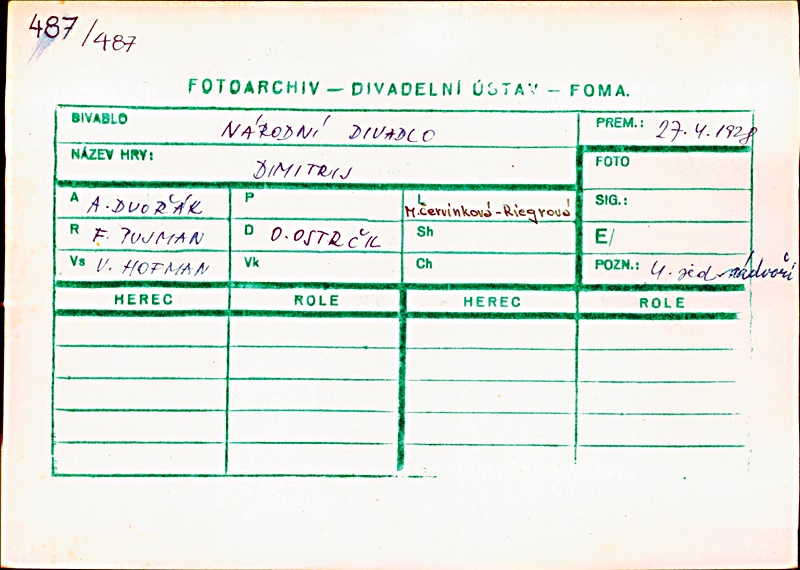 487/487
FOTOARCHIV — DIVADELNÍ ÚSTAV — FOMA.
BIVABLO NÁRODNÍ DIVADLO PREM.: 27.4.1928
NÁZEV HRY: DIMITRIJ FOTO
A A. DVOŘÁK P L M. Červinková-Riegrová SIG.:
R F. PUJMAN D O. OSTRČIL Sh E/
Vs V. HOFMAN Vk Ch POZN.: 4. jed nádvoří
HEREC ROLE HEREC ROLE